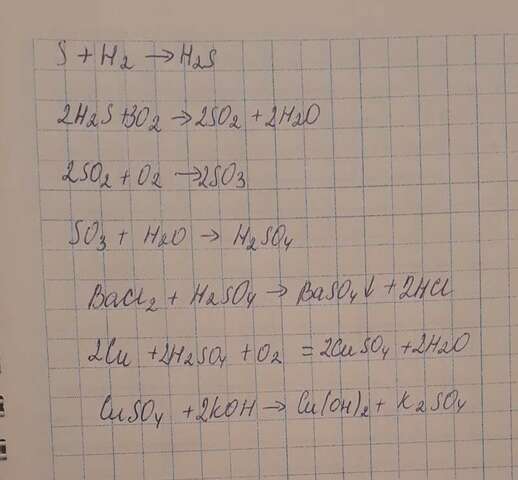 S + H2 → H2S
2H2S + 3O2 → 2SO2 + 2H2O
2SO2 + O2 → 2SO3
SO3 + H2O → H2SO4
BaCl2 + H2SO4 → BaSO4↓ + 2HCl
2Cu + 2H2SO4 + O2 = 2CuSO4 + 2H2O
CuSO4 + 2KOH → Cu(OH)2 + K2SO4